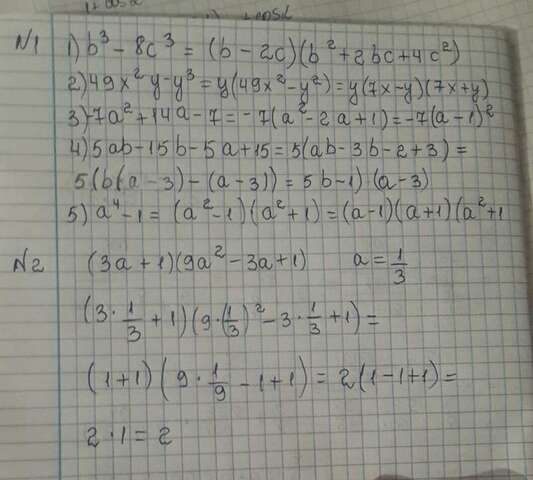 N1 1) b³ - 8c³ = (b - 2c)(b² + 2bc + 4c²)
2) 49x²y - y³ = y(49x² - y²) = y(7x - y)(7x + y)
3) -7a² + 14a - 7 = -7(a² - 2a + 1) = -7(a - 1)²
4) 5ab - 15b - 5a + 15 = 5(ab - 3b - 2 + 3) =
5(b(a - 3) - (a - 3)) = 5b - 1)(a - 3)
5) a⁴ - 1 = (a² - 1)(a² + 1) = (a - 1)(a + 1)(a² + 1
N2 (3a + 1)(9a² - 3a + 1) a = 1/3
(3 · 1/3 + 1)(9 · (1/3)² - 3 · 1/3 + 1) =
(1 + 1)(9 · 1/9 - 1 + 1) = 2(1 - 1 + 1) =
2 · 1 = 2